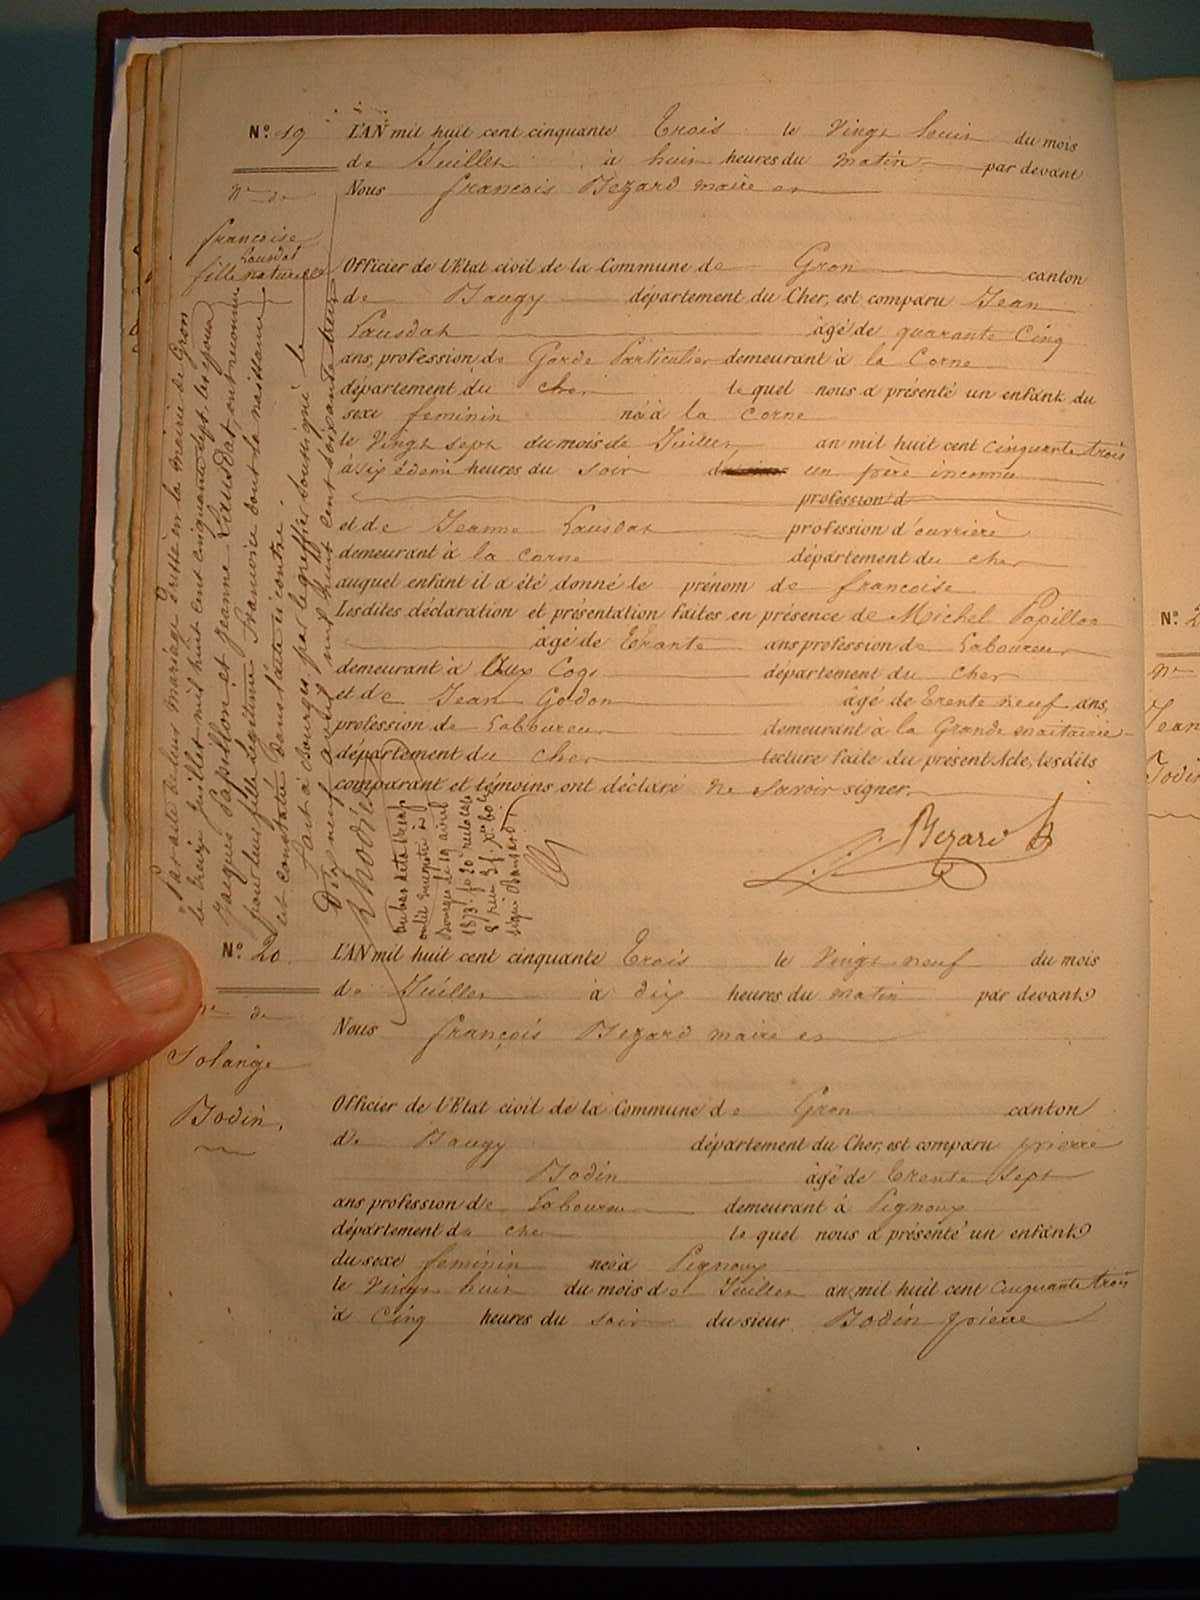 N.º 19
Nce de
francoise
Lausdat
fille naturelle
L'AN mil huit cent cinquante Trois le Vingt huit du mois
de Juillet à huit heures du matin par devant
Nous francois Bezard maire et
Officier de l'Etat civil de la Commune de Gron canton
de Baugy département du Cher, est comparu Jean
Lausdat âgé de quarante Cinq
ans, profession de Garde Particulier demeurant à la Corne
département du cher le quel nous a présenté un enfant du
sexe feminin né à la corne
le Vingt sept du mois de Juillet an mil huit cent cinquante trois
à six & demi heures du soir un père inconnu
profession d
et de Jeanne Lausdat profession d'ouvrière
demeurant à la corne département du cher
auquel enfant il a été donné le prénom de francoise
Lesdites déclaration et présentation faites en présence de Michel Papillon
âgé de Trante ans profession de Laboureur
demeurant à Aux Cogs département du cher
et de Jean Godon âgé de Trente neuf ans,
profession de Laboureur demeurant à la Grande maitairie
département du cher lecture faite du présent Acte, lesdits
comparant et témoins ont déclaré ne Savoir signer.
Bezard
Par acte de leur mariage dressé en la mairie de Gron
le treize Juillet mil huit cent cinquante sept, les époux
Jacques Papillon et Jeanne Lausdat ont reconnu
pour leur fille légitime Francoise dont la naissance
est constatée dans l'acte ci contre.
Fait à Bourges, par le greffier soussigné le
Dix neuf avril mil huit cent soixante treize
N.º 20
Nce de
Solange
Bodin.
L'AN mil huit cent cinquante Trois le Vingt neuf du mois
de Juillet à dix heures du matin par devant
Nous françois Bezard maire et
Officier de l'Etat civil de la Commune de Gron canton
de Baugy département du Cher, est comparu pierre
Bodin âgé de Trente Sept
ans profession de Laboureur demeurant à Pignoux
département du cher le quel nous a présenté un enfant
du sexe feminin né à Pignoux
le Vingt huit du mois de Juillet an mil huit cent cinquante trois
à Cinq heures du soir du sieur Bodin pierre
N.º 2
Nce
Jean
Bodin